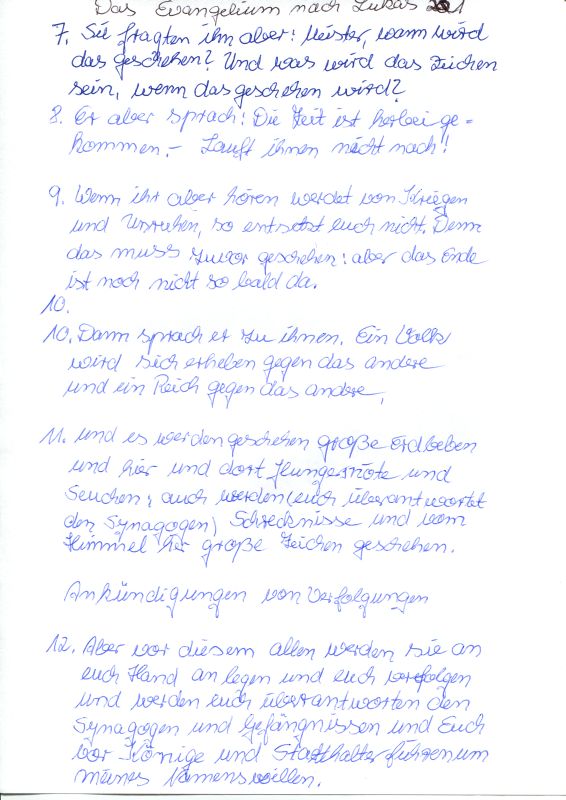 Das Evangelium nach Lukas 21
7. Sie fragten ihn aber: Meister, wann wird
das geschehen? Und was wird das Zeichen
sein, wenn das geschehen wird?
8. Er aber sprach: Die Zeit ist herbei ge=
kommen. – Lauft ihnen nicht nach!
9. Wenn ihr aber hören werdet von Kriegen
und Unruhen, so entsetzt euch nicht. Denn
das muss zuvor geschehen: aber das Ende
ist noch nicht so bald da.
10.
10. Dann sprach er zu ihnen. Ein Volk
wird sich erheben gegen das andere
und ein Reich gegen das andere,
11. und es werden geschehen große Erdbeben
und hier und dort Hungersnöte und
Seuchen, auch werden (euch überantwortet
den Synagogen) Schrecknisse und vom
Himmel her große Zeichen geschehen.
Ankündigungen von Verfolgungen
12. Aber vor diesem allen werden sie an
euch Hand an legen und euch verfolgen
und werden euch überantworten den
Synagogen und Gefängnissen und Euch
vor Könige und Statthalter führen um
meines Namens willen.